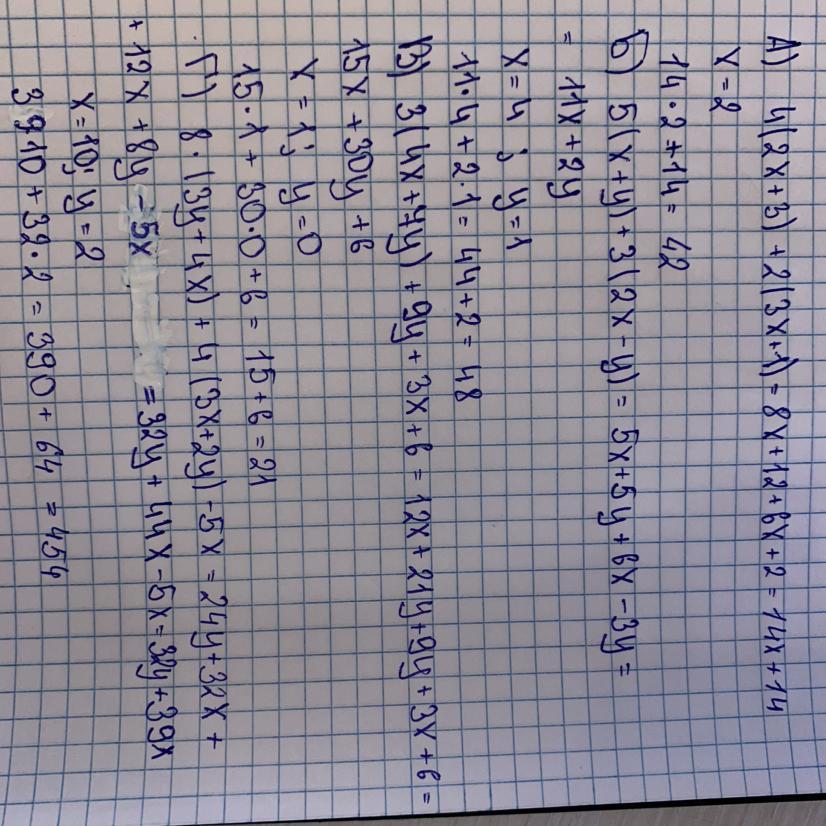 А) 4(2x+3) + 2(3x+1) = 8x+12+6x+2 = 14x+14
x=2
14·2+14 = 42
б) 5(x+y)+3(2x-y) = 5x+5y+6x-3y =
= 11x+2y
x=4 ; y=1
11·4+2·1 = 44+2 = 48
В) 3(4x+7y) + 9y + 3x+6 = 12x+21y+9y+3x+6 =
15x+30y+6
x=1; y=0
15·1+30·0+6 = 15+6 = 21
Г) 8·(3y+4x)+4(3x+2y)-5x = 24y+32x+
+12x+8y-5x = 32y+44x-5x = 32y+39x
x=10; y=2
39·10+32·2 = 390+64 = 454